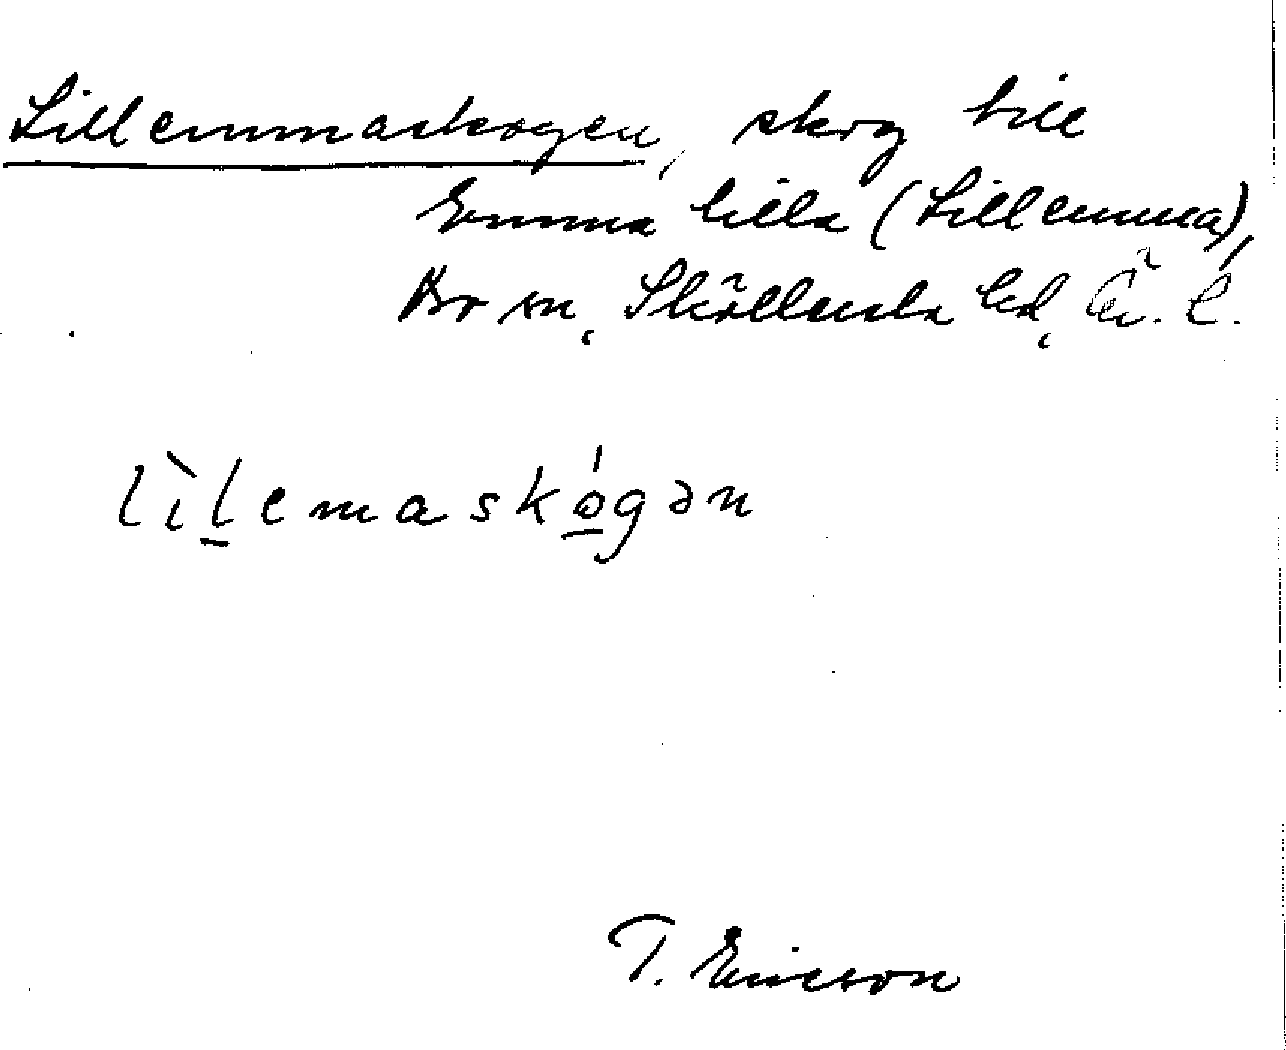 Lillemmaskogen, skog till
Emma lilla (Lillemma),
Bro sn, Sköllersta hd, Ö. l.
lìḻemaskó̱gən
T. Ericson